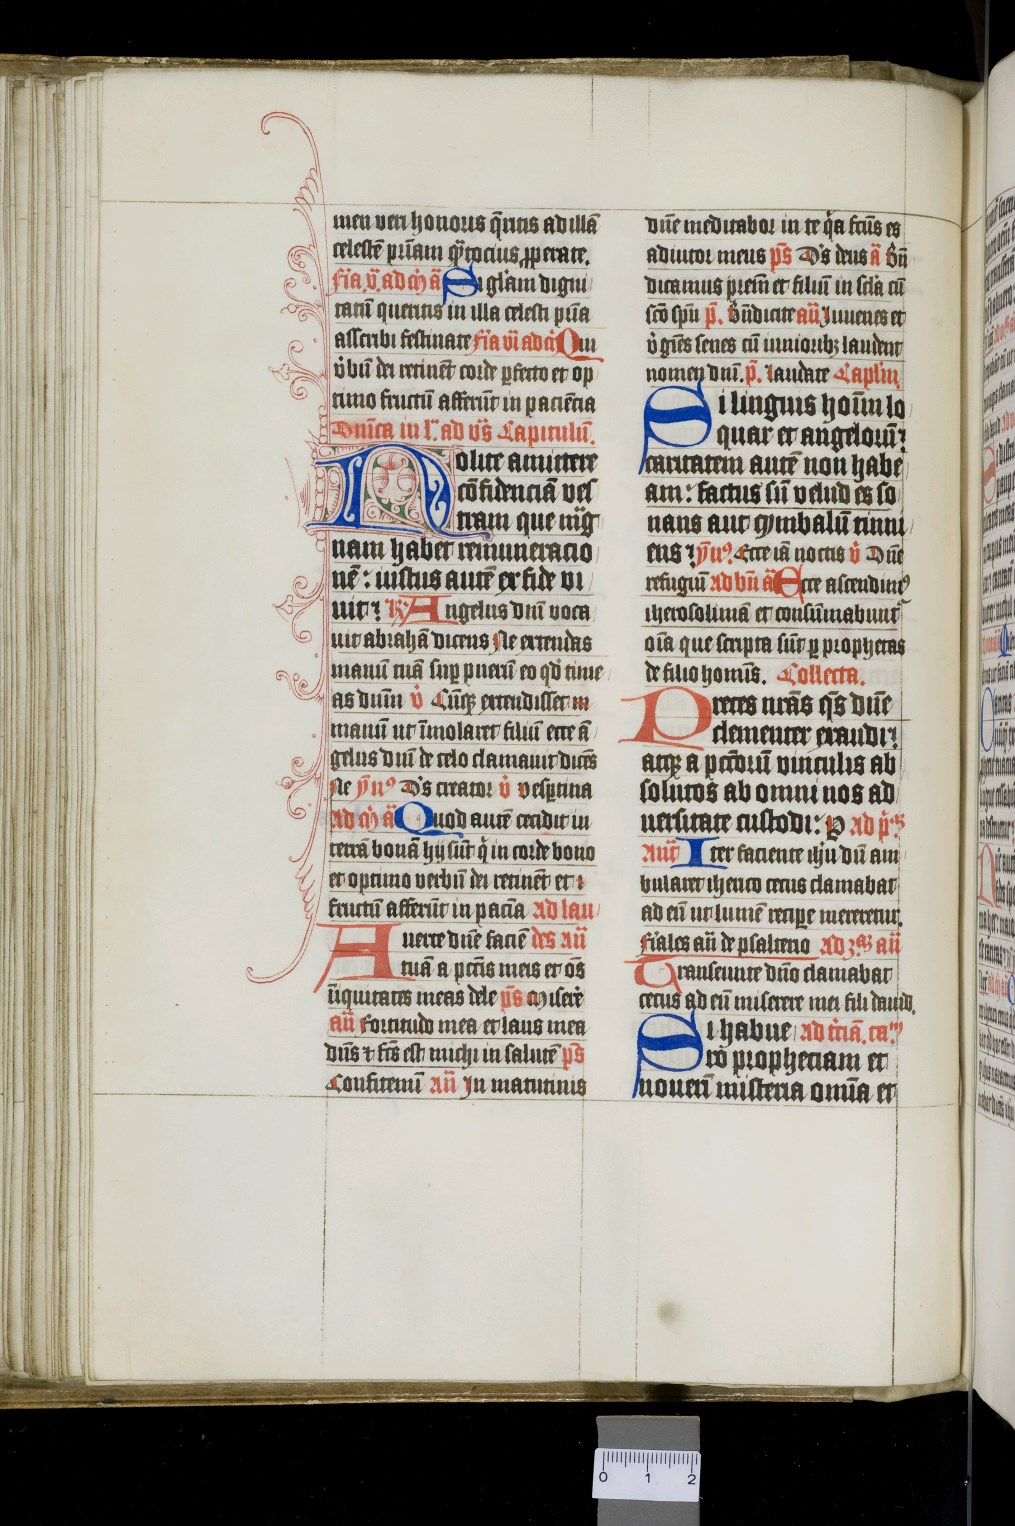 men veri honoris q̄ritis ad illā
celestē pr̄iam q̄ntocius ꝓperate.
fīa .v. ad m̄ ā Si gl̄am digni
tatū queritis in illa celesti pr̄ia
asscribi festinate fīa vi ad m̄ Qui
v̓bū dei retinēt corde ꝑfecto et op
timo fructū afferūt in paciēcia
Dn̄ica in lͣ ad vs̄ Capitulū.
Nolite amittere
cōfidenciā ves
tram que mag
nam habet remuneracio
nē : iustus autē ex fide vi
uit⁊ R̓ Angelus dn̄i voca
uit abrahā dicens Ne extendas
manū tuā suꝑ puerū eo qd̓ time
as dn̄m v̓ Cūqꝫ extendisset
manū ut īmolaret filiū ecce ā
gelus dn̄i de celo clamauit dicēs
Ne ȳnꝰ Ds̄ creator v̓ vesꝑtina
ad m̄ ā Quod autē cecidit in
terrā bonā hij sūt q̓ in corde bono
et optimo verbū dei retinēt et
fructū afferūt in paciā ad lau
Auerte dn̄e faciē des an̄
tuā a pctīs meis et oēs
īiquitates meas dele ps̄ Miserē
an̄ Fortitudo mea et laus mea
dn̄s ⁊ fcs̄ est michi in salutē ps̄
Confitemī an̄ In matutinis
dn̄e meditabor in te q̓a fcūs es
adiutor meus ps̄ Ds̄ deus ā Bn̄
dicamus prem̄ et filiū in scl̄a cū
scō spū p̄. Bn̄dicite an̄ Iuuenes et
v̓gīes senes cū iunioribꝫ laudent
nomen dn̄i. p̄. laudate Caplm̄.
Si linguis hoīm lo
quar et angelorū⁊
caritatem autē non habe
am : factus sū velud es so
nans aut cymbalū tinni
ens⁊ ȳnꝰ. Ecce iā noctis v̓ Dn̄e
refugiū ad bn̄ ā Ecce ascendimꝰ
iherosolimā et consūmabunt̄
oīa que scripta sūt ꝑ prophetas
de filio homīs. Collecta.
Preces nr̄as qs̄ dn̄e
clementer exaudi⁊
atqꝫ a pctōrū vinculis ab
solutos ab omni nos ad
uersitate custodi: P ad p̓ꝫ
Ant̄ Iter faciente ihū dū am
bularet iherico cecus clamabat
ad eū ut lumē recipe mereretur.
Fīales an̄ de psalterio ad 3ᵃꝫ an̄
Transeunte dn̄o clamabat
cecus ad eū miserere mei fili dauid.
Si habue ad tc̓iā. caᵐ
rō prophetiam et
nouerī misteria omīa et